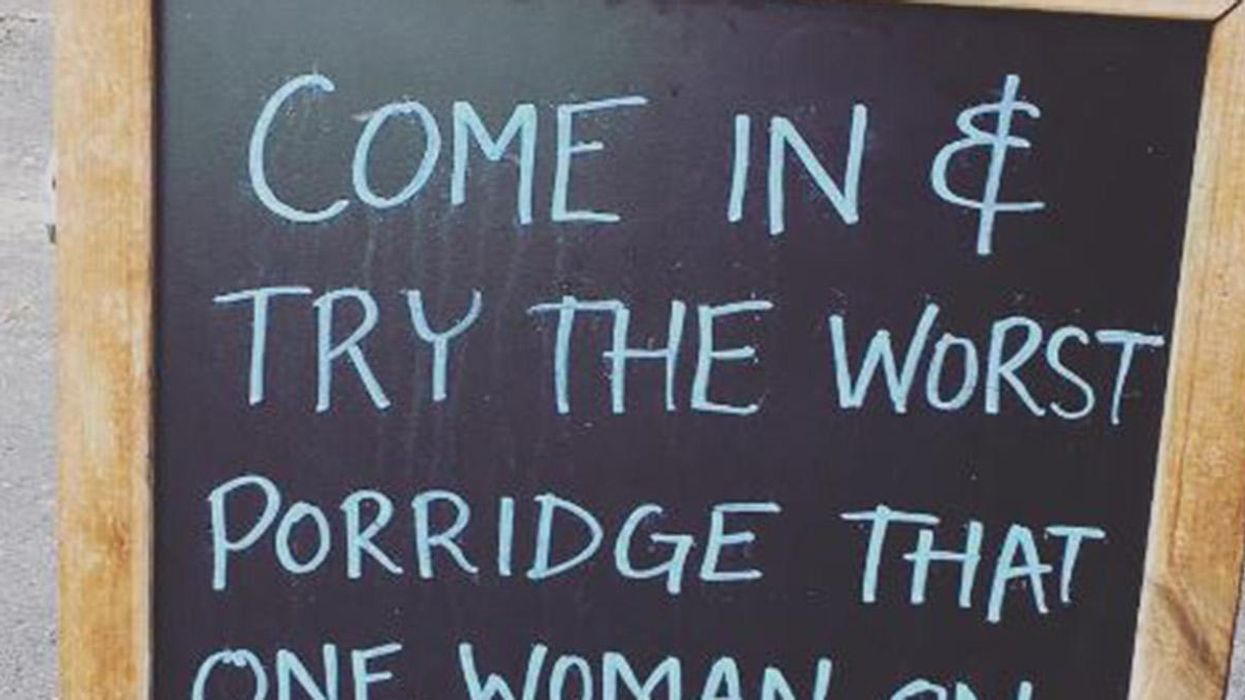 COME IN &
TRY THE WORST
PORRIDGE THAT
ONE WOMAN ON